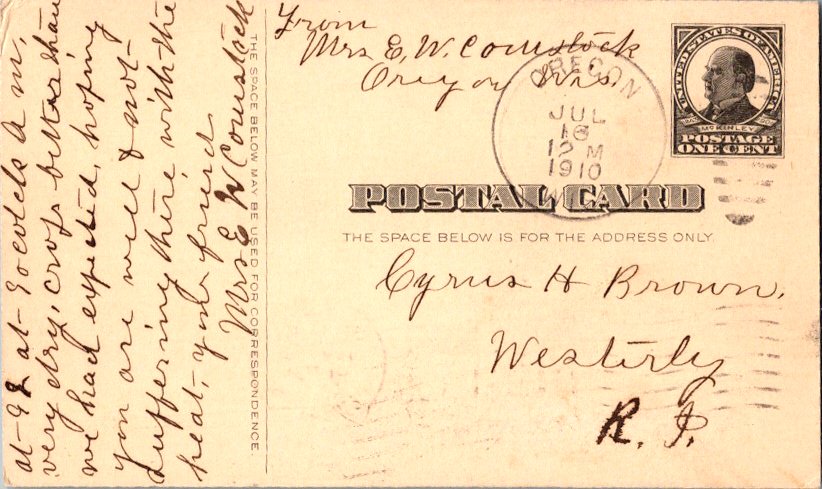 From
Mrs E. W. Comstock
Oregon Wis.
OREGON
JUL
16
12 M
1910
WIS
UNITED STATES OF AMERICA
MCKINLEY
POSTAGE
ONE CENT
POSTAL CARD
THE SPACE BELOW IS FOR THE ADDRESS ONLY.
Cyrus H Brown.
Westerly
R. I.
THE SPACE BELOW MAY BE USED FOR CORRESPONDENCE.
at 92 at 9 oclock a m,
very dry, crops better than
we had expected, hoping
you are well & not
suffering there with the
heat, your friend
Mrs E W Comstock